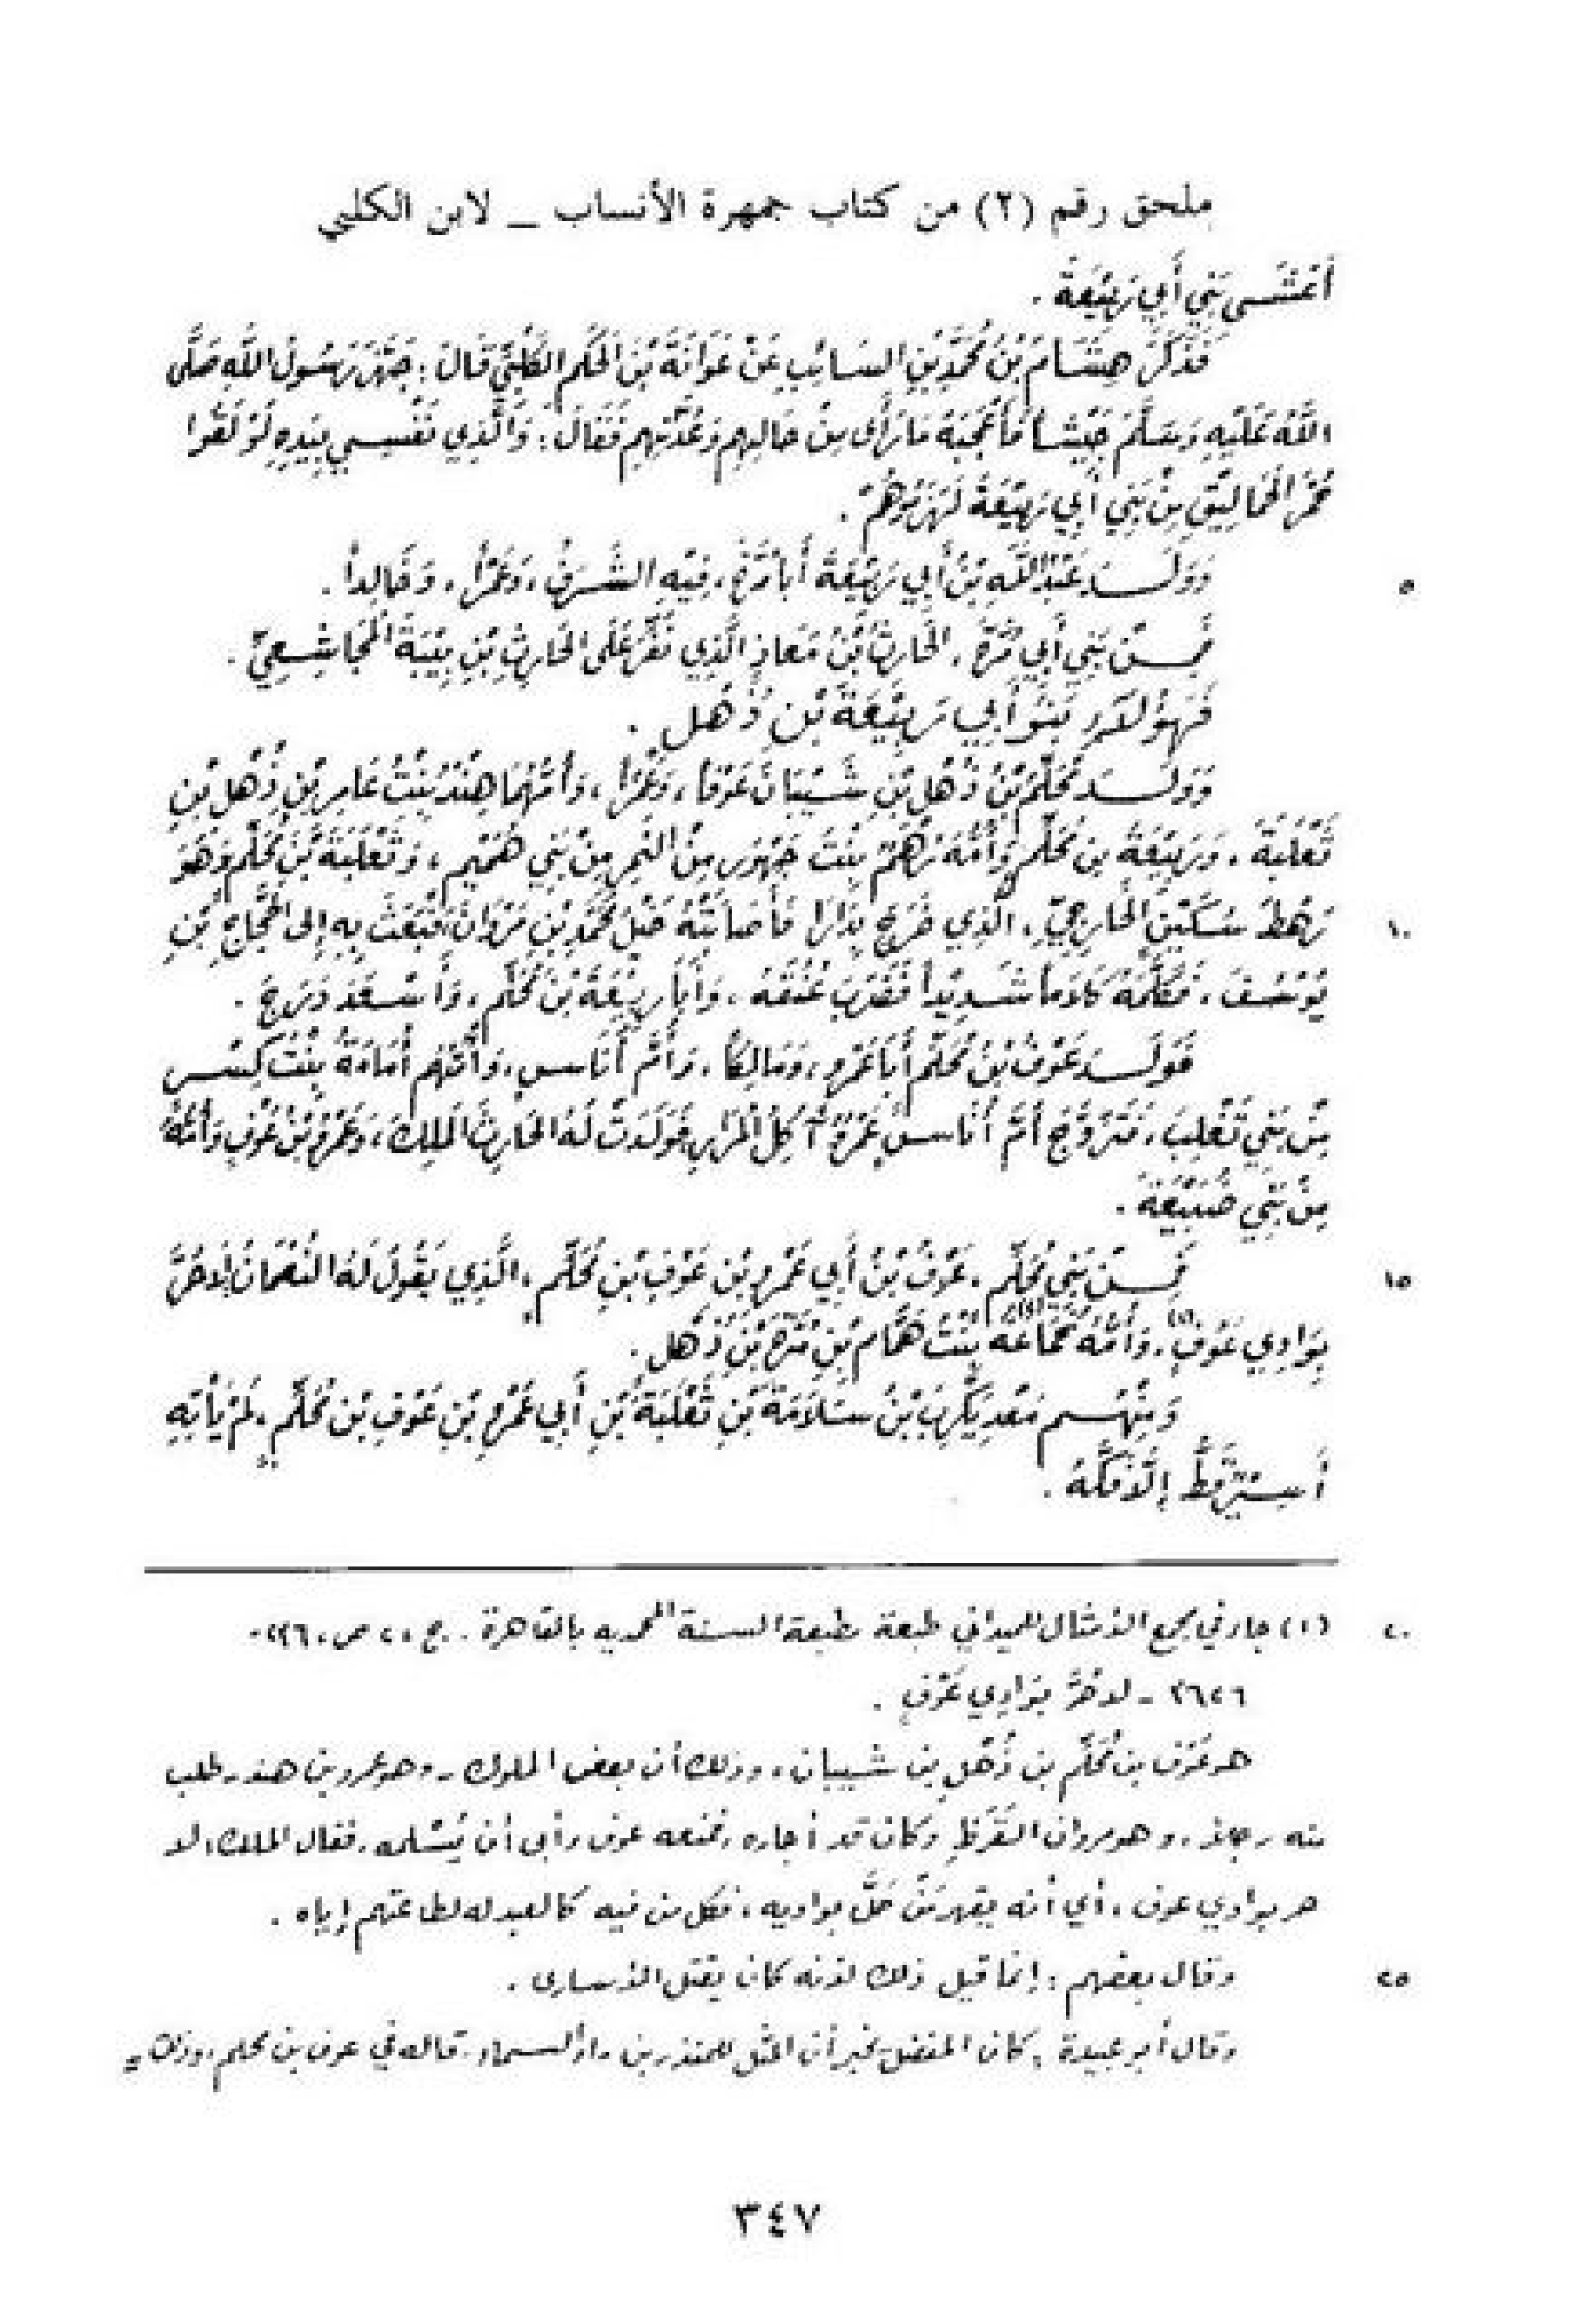 ملحق رقم (٢) من كتاب جمهرة الأنساب ــ لابن الكلبي
أَعْشَى بَنِي أَبِي رَبِيْعَةَ .
فَذَكَرَ هِشَامُ بْنُ مُحَمَّدِ بْنِ السَائِبِ عَنْ عَوَانَةَ بْنِ الحَكَمِ الكَلْبِيِّ قَالَ : جَهَّزَ رَسُولُ اللَّهِ صَلَّى
اللَّهُ عَلَيْهِ وَسَلَّمَ جَيْشاً فَأَعْجَبَهُ مَا رَأَى مِنْ حَالِهِم وَعُدَّتِهِم فَقَالَ : وَالَّذِي نَفْسِي بِيَدِهِ لَوْ لَقُوا
حُمْرَ الحَمَالِيْقِ مِنْ بَنِي أَبِي رَبِيْعَةَ لَهَزَمُوهُمْ .
٥ وَوَلَدَ عَبْدُ اللَّهِ بْنُ أَبِي رَبِيْعَةَ أَبَا مُرَّةَ ، فِيْهِ الشَّرَفُ ، وَعَمْرَاً ، وَخَالِداً .
فَمِنْ بَنِي أَبِي مُرَّةَ ، الحَارِثُ بْنُ مَعَاذٍ الَّذِي نُفِّرَ عَلَى الحَارِثِ بْنِ بِيْبَةَ المُجَاشِعِيِّ .
فَهَؤُلَاءِ بَنُو أَبِي رَبِيْعَةَ بْنِ ذُهْلٍ .
وَوَلَدَ مُحَلِّمُ بْنُ ذُهْلِ بْنِ شَيْبَانَ عَوْفَاً ، وَعَمْرَاً ، وَأُمُّهُمَا هِنْدُ بِنْتُ عَامِرِ بْنِ ذُهْلِ بْنِ
ثَعْلَبَةَ ، وَرَبِيْعَةَ بنَ مُحَلِّمٍ وَأُمُّهُ رُهْمُ بِنْتُ جَهْوَرِ مِنْ النَمِرِ مِنْ بَنِي هُمَيْمٍ ، وَثَعْلَبَةَ بْنَ مُحَلِّمٍ وَهُوَ
١٠ رَهْطُ سُكَيْنٍ الخَارِجِيِّ ، الَّذِي خَرَجَ بِدَارَا فَأَصَابَتْهُ خَيْلُ مُحَمَّدِ بْنِ مَرْوَانَ ، فَبَعَثَ بِهِ إِلى الحَجَّاجِ بْنِ
يُوْسُفَ ، فَكَلَّمَهُ كَلَاماً شَدِيْداً فَضَرَبَ عُنُقَهُ ، وَأَبَا رَبِيْعَةَ بْنَ مُحَلِّمٍ ، وَأَسْعَدَ دَرَجَ .
فَوَلَدَ عَوْفُ بْنُ مُحَلِّمٍ أَبَا عَمْرٍو ، وَمَالِكَاً ، وَأُمَّ أُنَاسٍ ، وَأُمُّهُم أُمَامَةُ بِنْتُ كِسْرِ
مِنْ بَنِي تَغْلِبَ ، فَتَزَوَّجَ أُمَّ أُنَاسٍ عَمْرُو آكِلُ المُرَارِ فَوَلَدَتْ لَهُ الحَارِثَ المَلِكَ ، وَعَمْرَو بْنَ عَوْفٍ وَأُمُّهُ
مِنْ بَنِي ضُبَيْعَةَ .
١٥ فَمِنْ بَنِي مُحَلِّمٍ ، عَوْفُ بْنُ أَبِي عَمْرِو بْنِ عَوْفِ بْنِ مُحَلِّمٍ ، الَّذِي يَقُولُ لَهُ النُعْمَانُ لَاحُرَّ
بِوَادِي عَوْفٍ (١) ، وَأُمُّهُ جُمَاعَةُ بِنْتُ هَمَّامِ بْنِ مُرَّةَ بْنِ ذُهْلٍ .
وَمِنْهُم مَعْدِيْكَرِبَ بْنُ سَلَامَةَ بْنِ ثَعْلَبَةَ بْنِ أَبِي عَمْرِو بْنِ عَوْفِ بْنِ مُحَلِّمٍ ، لَمْ يَأْتِهِ
أَسِيْرٌ قَطُّ إِلَّا فَكَّهُ .
٢٠ (١) جاء في مجمع الأمثال للميداني طبعة مطبعة السنة المحمديه بالقاهرة . ج ، ٢ ص ، ٢٣٦ -
٣٦٢٦ - لا حُرَّ بِوَادِي عَوْفٍ .
هو عَوْف بن مُحَلِّم بن ذُهْلِ بن شيبان ، وذلك أن بعض الملوك - وهو عمرو بن هند - طلب
منه رجلاً ، وهو مروان القَرَظِ وكان قد أجاره ، فمنعه عوف وأبى أن يُسْلمه ، فقال الملك : لا
حر بوادي عوف ، أي أنه يقهر مَنْ حَلَّ بواديه ، فكل من فيه كالعبد له لطاعتهم إياه .
٢٥ وقال بعضهم : إنما قيل ذلك لأنه كان يقتل الأسارى .
وقال أبو عبيدة : كان المفضل يخبر أن المثل للمنذر بن ماء السماء ، قاله في عوف بن محلم ، وذلك =
٣٤٧